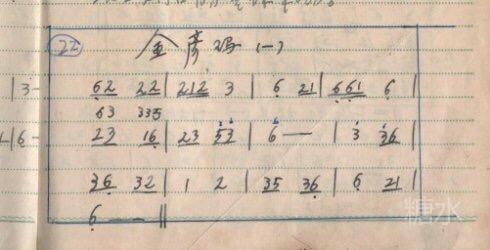 22 金彦玛 (一)
62 22 | 212 3 | 6 21 | 661 6 |
|3- 63 335
23 16 | 23 53 | 6 — | 3 36 |
|6-
36 32 | 1 2 | 35 36 | 6 21 |
6 — — ||
糖水